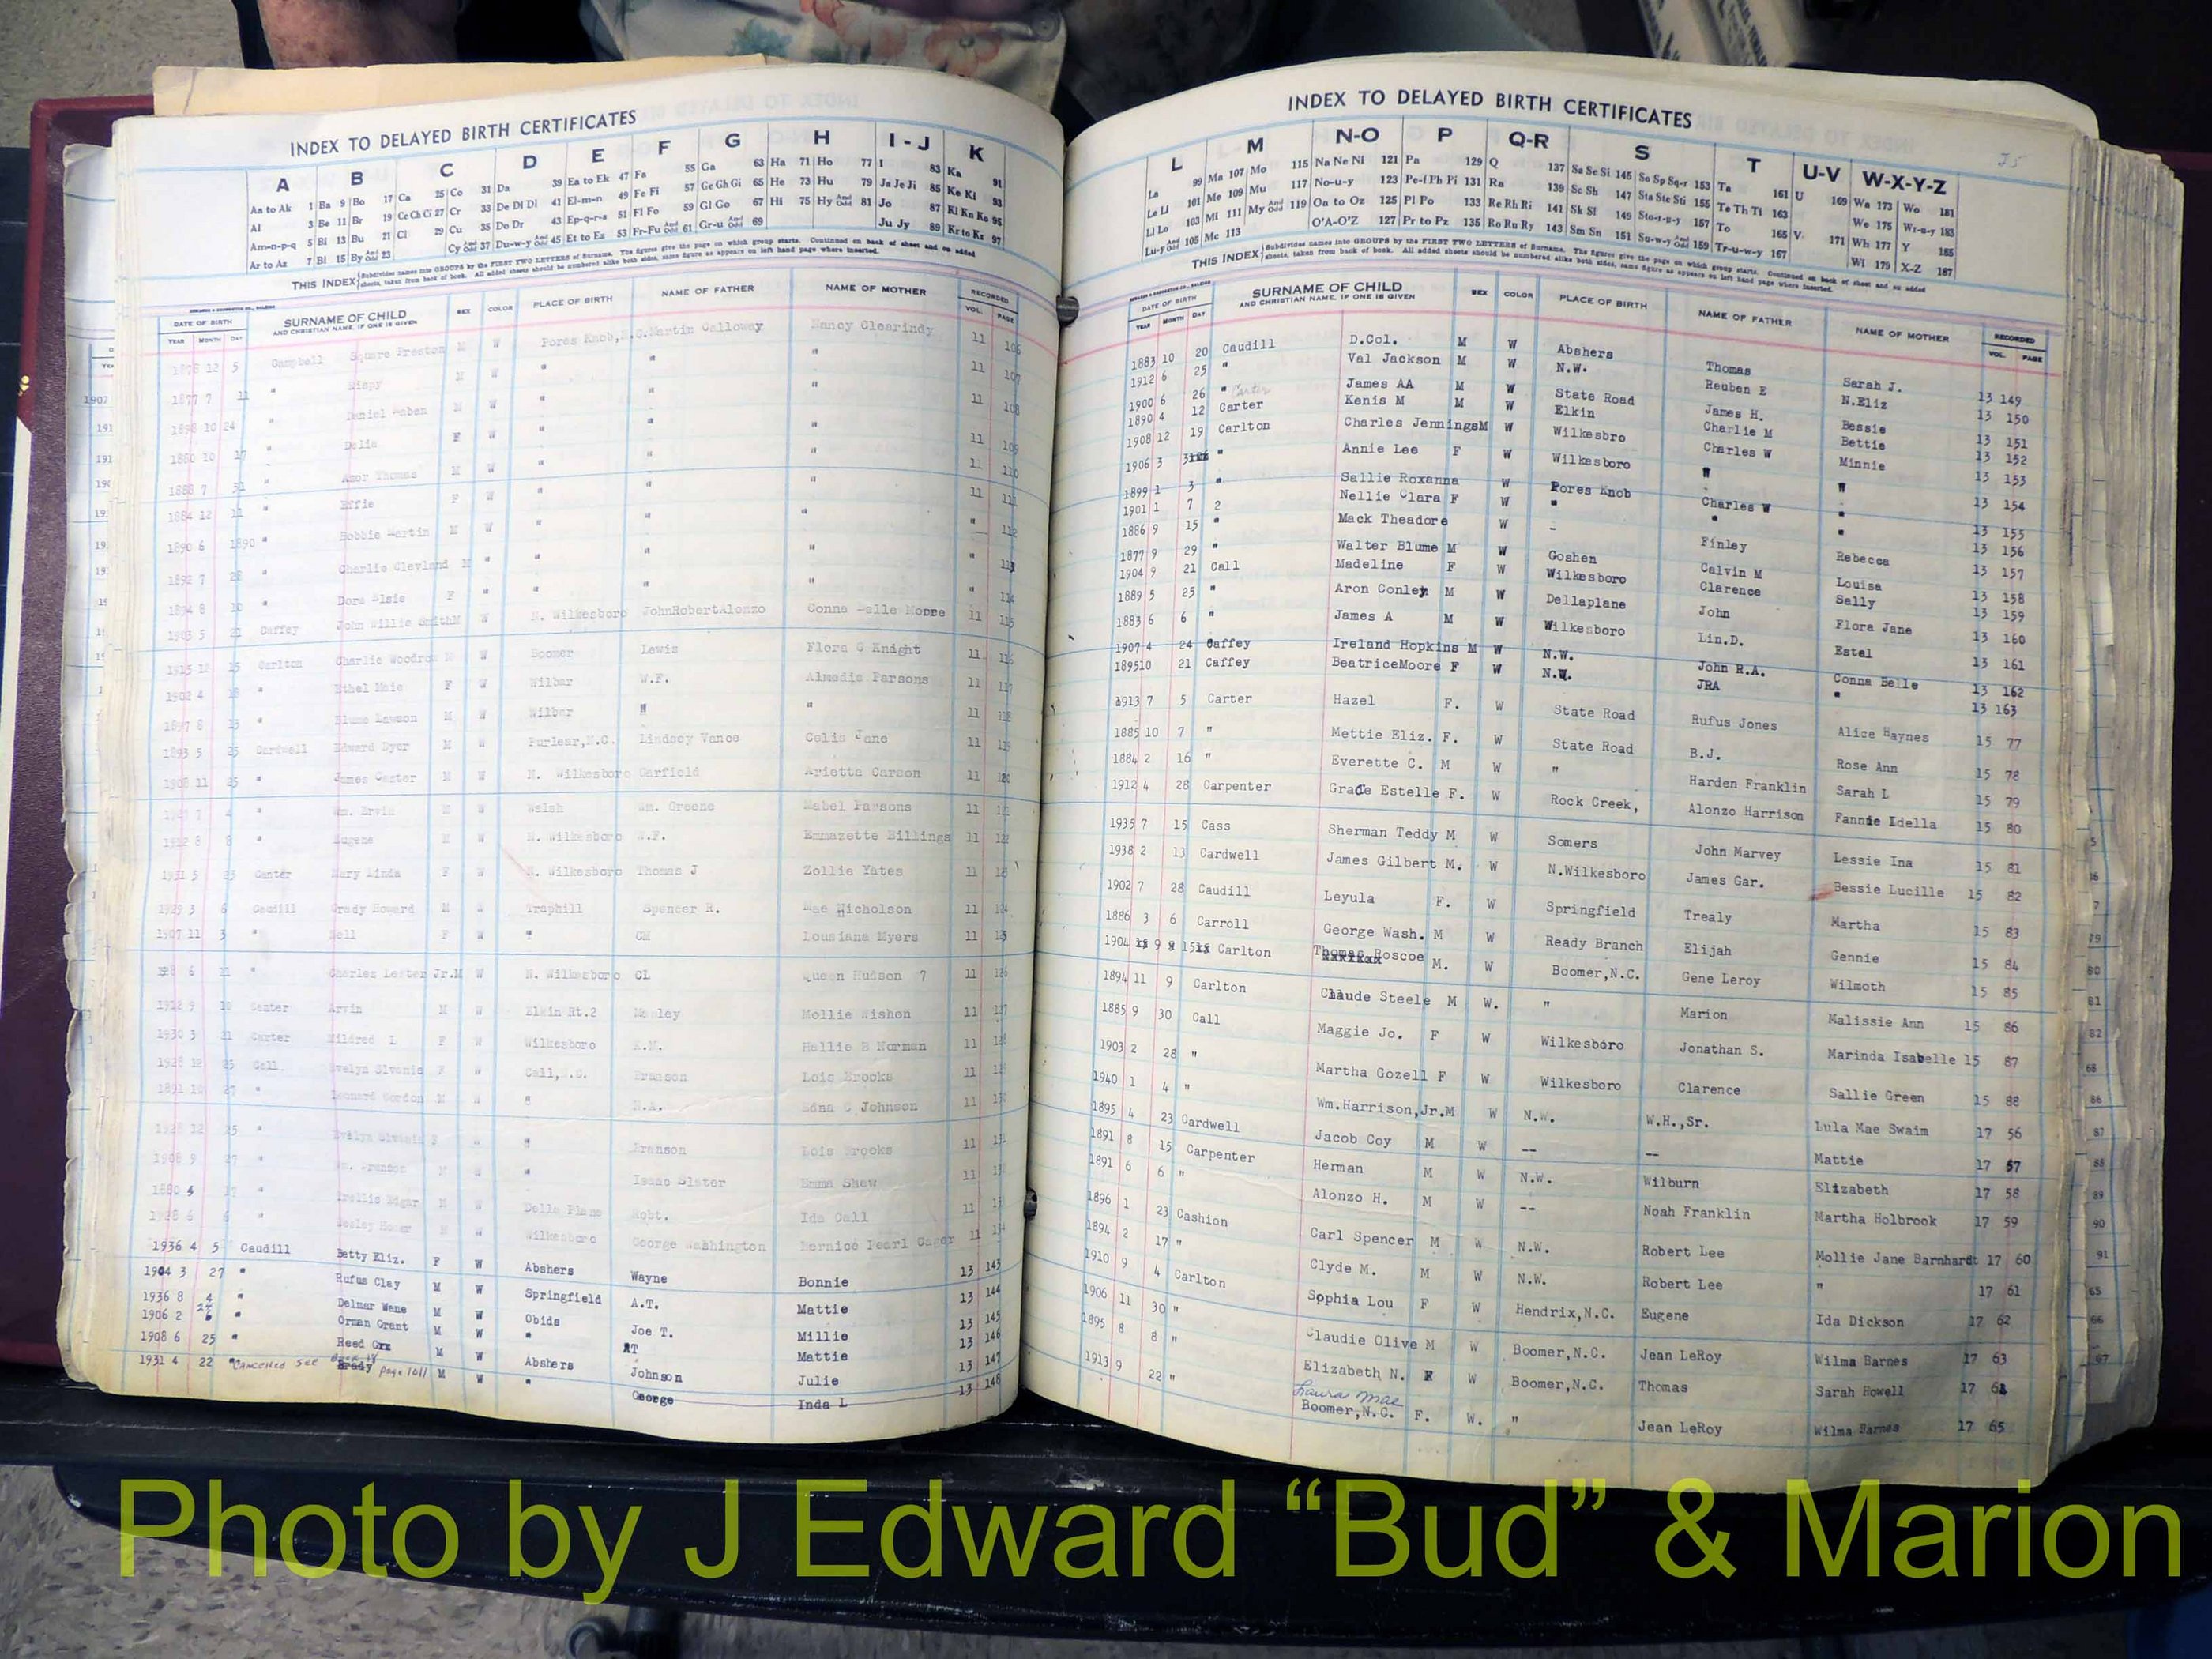 INDEX TO DELAYED BIRTH CERTIFICATES
A B C D E F G H I-J K
Aa to Ak 1 Ba 9 Bo 17 Ca 25 Co 31 Da 39 Ea to Ek 47 Fa 55 Ga 63 Ha 71 Ho 77 I 83 Ka 91
Al 3 Be 11 Br 19 Ce Ch Ci 27 Cr 33 De Di Dl 41 El-m-n 49 Fe Fi 57 Ge Gh Gi 65 He 73 Hu 79 Ja Je Ji 85 Ke Ki 93
Am-n-p-q 5 Bi 13 Bu 21 Cl 29 Cu 35 Do Dr 43 Ep-q-r-s 51 Fl Fo 59 Gl Go 67 Hi 75 Hy And Odd 81 Jo 87 Kl Kn Ko 95
Ar to Az 7 Bl 15 By And Odd 23 Cy And Odd 37 Du-w-y And Odd 45 Et to Ez 53 Fr-Fu And Odd 61 Gr-u And Odd 69 Ju Jy 89 Kr to Kz 97
THIS INDEX Subdivides names into GROUPS by the FIRST TWO LETTERS of Surname. The figures give the page on which group starts. Continued on back of sheet and on added
sheets, taken from back of book. All added sheets should be numbered alike both sides, same figure as appears on left hand page where inserted.
DATE OF BIRTH SURNAME OF CHILD SEX COLOR PLACE OF BIRTH NAME OF FATHER NAME OF MOTHER RECORDED
YEAR MONTH DAY AND CHRISTIAN NAME, IF ONE IS GIVEN VOL. PAGE
1878 12 5 Campbell Square Preston M W Pores Knob, N.C. Martin Calloway Nancy Clearindy 11 106
1877 7 11 " M W " " " 11 107
1898 10 24 " Daniel M W " " " 11 108
1880 10 17 " Delia F W " " " 11 109
1888 7 31 " Amor Thomas M W " " " 11 110
1884 12 11 " Effie F W " " " 11 111
1890 6 1890 " Bobbie Martin M W " " " " 112
1892 7 28 " Charlie Clevland M " " " " " 113
1894 8 10 " Dora Elsie F " " " " " 114
1903 5 21 Caffey John Willie Smith M W N. Wilkesboro JohnRobertAlonzo Conna Belle Moore 11 115
15 Carlton Charlie Woodrow M W Boomer Lewis Flora C Knight 11 116
1902 4 18 " Ethel Maie F W Wilbar W.F. Almedia Parsons 11 117
1897 8 13 " Blume Lawson M W Wilbar " " 11 118
1893 5 25 Cardwell Edward Dyer M W Purlear, N.C. Lindsey Vance Celia Jane 11 119
1908 11 25 " James Carter M W N. Wilkesboro Garfield Arietta Carson 11 120
7 4 " Wm. Ervin M W Walsh Wm. Greene Mabel Parsons 11 121
8 8 " Eugene M W N. Wilkesboro W.F. Emmazette Billings 11 122
1931 5 23 Canter Mary Linda F W N. Wilkesboro Thomas J Zollie Yates 11 123
1929 3 6 Caudill Grady Howard M W Traphill Spencer R. Mae Nicholson 11 124
1907 11 3 " Nell F W " CM Lousiana Myers 11 125
6 11 " Charles Lester Jr. M W N. Wilkesboro CL Queen Hudson 7 11 126
1912 9 Canter Arvin M W Elkin Rt.2 Manley Mollie Wishon 11 127
1930 3 21 Carter Mildred L F W Wilkesboro Hellie B Norman 11 128
1928 12 25 Call Evelyn Slvania F W Call, N.C. Branson Lois Brooks 11 129
1891 10 27 " Leonard Gordon M W " N.A. Edna C Johnson 11 130
1928 12 25 " Evelyn Slvania F " " Branson Lois Brooks 11 131
1908 9 27 " Wm. Brandon M W " Isaac Slater Emma Shew 11 132
1880 4 17 " Edgar M W Della Plane Robt. Ida Call 11 133
1928 6 6 " Wesley Homer M W Wilkesboro George Washington Bernice Pearl 11 134
1936 4 5 Caudill Betty Eliz. F W Abshers Wayne Bonnie 13 143
1904 3 27 " Rufus Clay M W Springfield A.T. Mattie 13 144
1936 8 4 " Delmar Wane M W Obids Joe T. Millie 13 145
1906 2 24 " Orman Grant M W " AT Mattie 13 146
1908 6 25 " Reed M W Abshers Johnson Julie 13 147
1931 4 22 " Cancelled See Book 18 Page 1011 Brady M W " George Inda L 13 148
INDEX TO DELAYED BIRTH CERTIFICATES
L M N-O P Q-R S T U-V W-X-Y-Z
La 99 Ma 107 Mo 115 Na Ne Ni 121 Pa 129 Q 137 Sa Se Si 145 So Sp Sq-r 153 Ta 161 U 169 Wa 173 Wo 181
Le Li 101 Me 109 Mu 117 No-u-y 123 Pe-f Ph Pi 131 Ra 139 Sc Sh 147 Sta Ste Sti 155 Te Th Ti 163 V 171 We 175 Wr-u-y 183
Ll Lo 103 Mi 111 My And Odd 119 Oa to Oz 125 Pl Po 133 Re Rh Ri 141 Sk Sl 149 Sto-r-u-y 157 To 165 Wh 177 Y 185
Lu-y And Odd 105 Mc 113 O'A-O'Z 127 Pr to Pz 135 Ro Ru Ry 143 Sm Sn 151 Su-w-y And Odd 159 Tr-u-w-y 167 Wi 179 X-Z 187
THIS INDEX Subdivides names into GROUPS by the FIRST TWO LETTERS of Surname. The figures give the page on which group starts. Continued on back of sheet and on added
sheets, taken from back of book. All added sheets should be numbered alike both sides, same figure as appears on left hand page where inserted.
DATE OF BIRTH SURNAME OF CHILD SEX COLOR PLACE OF BIRTH NAME OF FATHER NAME OF MOTHER RECORDED
YEAR MONTH DAY AND CHRISTIAN NAME, IF ONE IS GIVEN VOL. PAGE
1883 10 20 Caudill D.Col. M W Abshers Thomas Sarah J. 13 149
1912 6 25 " Val Jackson M W N.W. Reuben E N.Eliz 13 150
1900 6 26 " Carter James AA M W State Road James H. Bessie 13 151
1890 4 12 Carter Kenis M M W Elkin Charlie M Bettie 13 152
1908 12 19 Carlton Charles Jennings M W Wilkesbro Charles W Minnie 13 153
1906 3 " Annie Lee F W Wilkesboro " " 13 154
1899 1 3 " Sallie Roxanna W Pores Knob Charles W " 13 155
1901 1 7 2 Nellie Clara F W " " " 13 156
1886 9 15 " Mack Theadore W - Finley Rebecca 13 157
1877 9 29 " Walter Blume M W Goshen Calvin M Louisa 13 158
1904 9 21 Call Madeline F W Wilkesboro Clarence Sally 13 159
1889 5 25 " Aron Conley M W Dellaplane John Flora Jane 13 160
1883 6 6 " James A M W Wilkesboro Lin.D. Estel 13 161
1907 4 24 Caffey Ireland Hopkins M W N.W. John R.A. Conna Belle 13 162
1895 10 21 Caffey BeatriceMoore F W N.W. JRA " 13 163
1913 7 5 Carter Hazel F. W State Road Rufus Jones Alice Haynes 15 77
1885 10 7 " Mettie Eliz. F. W State Road B.J. Rose Ann 15 78
1884 2 16 " Everette C. M W " Harden Franklin Sarah L 15 79
1912 4 28 Carpenter Grace Estelle F. W Rock Creek, Alonzo Harrison Fannie Idella 15 80
1935 7 15 Cass Sherman Teddy M W Somers John Marvey Lessie Ina 15 81
1938 2 13 Cardwell James Gilbert M. W N.Wilkesboro James Gar. Bessie Lucille 15 82
1902 7 28 Caudill Leyula F. W Springfield Trealy Martha 15 83
1886 3 6 Carroll George Wash. M W Ready Branch Elijah Gennie 15 84
1904 9 15 Carlton Thomas Roscoe M. W Boomer,N.C. Gene Leroy Wilmoth 15 85
1894 11 9 Carlton Claude Steele M W. " Marion Malissie Ann 15 86
1885 9 30 Call Maggie Jo. F W Wilkesboro Jonathan S. Marinda Isabelle 15 87
1903 2 28 " Martha Gozell F W Wilkesboro Clarence Sallie Green 15 88
1940 1 4 " Wm.Harrison,Jr.M W N.W. W.H.,Sr. Lula Mae Swaim 17 56
1895 4 23 Cardwell Jacob Coy M W -- -- Mattie 17 57
1891 8 15 Carpenter Herman M W N.W. Wilburn Elizabeth 17 58
1891 6 6 " Alonzo H. M W -- Noah Franklin Martha Holbrook 17 59
1896 1 23 Cashion Carl Spencer M W N.W. Robert Lee Mollie Jane Barnhardt 17 60
1894 2 17 " Clyde M. M W N.W. Robert Lee " 17 61
1910 9 4 Carlton Sophia Lou F W Hendrix,N.C. Eugene Ida Dickson 17 62
1906 11 30 " Claudie Olive M W Boomer,N.C. Jean LeRoy Wilma Barnes 17 63
1895 8 8 " Elizabeth N. F W Boomer,N.C. Thomas Sarah Howell 17 64
1913 9 22 " Laura Mae Boomer,N.C. F. W. " Jean LeRoy Wilma Barnes 17 65
Photo by J Edward “Bud” & Marion